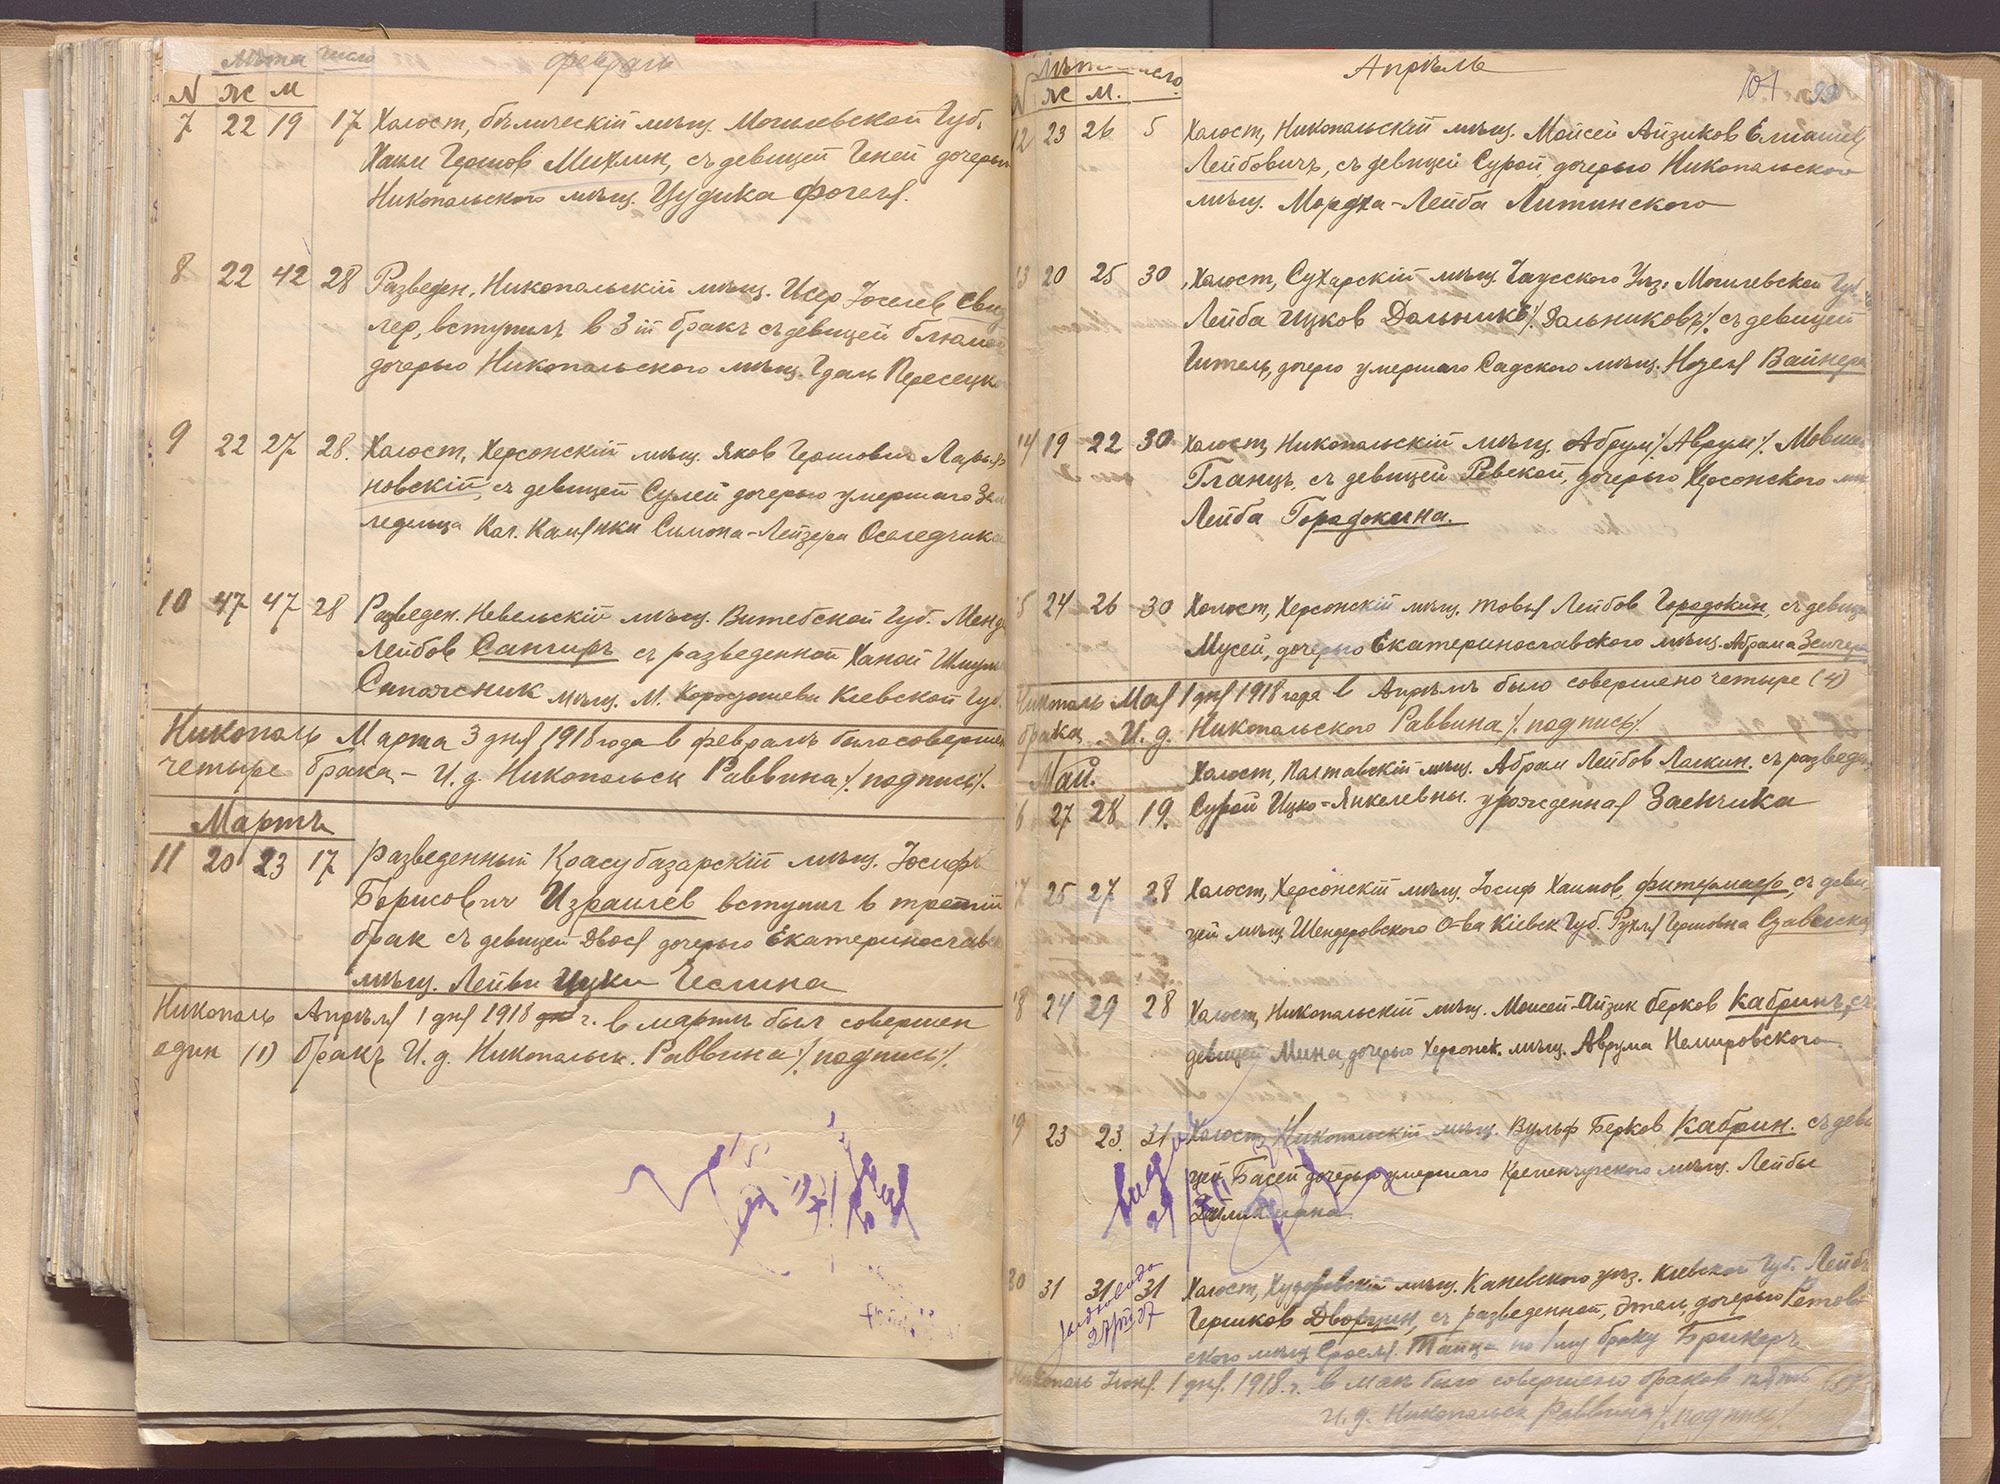 Лѣта Число Февраль
N Ж М
7 22 19 17 Холост, бѣлическій мѣщ. Могилевской Губ.
Хаим Гершов Михлин, съ девицей Геней дочерью
Никопольского мѣщ. Цудика Фогеля.
8 22 42 28 Разведен, Никопольскій мѣщ. Исер Іоселев
лер, вступилъ в 3ій бракъ съ девицей блюмой
дочерью Никопольского мѣщ. Гдаль Пересецко
9 22 27 28. Холост, Херсонскій мѣщ. Яков Гершович
новскій, съ девицей Сулей дочерью умершаго Зем
ледельца Кол. Каменки Симона-Лейзера Оселедчика
10 47 47 28 Разведен. Невельскій мѣщ. Витебской Губ. Менд
Лейбов Сангиръ съ разведенной Ханой Шмуль
Сапожник мѣщ. М. Кіевской Губ.
Никополь Марта 3 дня 1918 года в февралѣ было совершен
четыре брака - И. д. Никопольск Раввина /. подпись/.
Мартъ
11 20 23 17 Разведенный Красубазарскій мѣщ. Іосифъ
Борисович Израилев вступил в третій
брак съ девицей Двося дочерью Екатеринослав
мѣщ. Лейви Ицки Чеслина
Никополь Апрѣля 1 дня 1918 г. в мартѣ был совершен
один (1) бракъ И. д. Никопольск. Раввина /. подпись/.
Лѣта число. Апрѣль 101
N Ж М.
12 23 26 5 Холост, Никопольскій мѣщ. Мойсей Айзиков
Лейбовичъ, съ девицей Сурой, дочерью Никопольского
мѣщ. Мордха-Лейба Литинского
13 20 25 30 Холост, Сухарскій мѣщ. Чаусского Уѣз. Могилевской Губ.
Лейба Ицков Дольникъ /. Дольниковъ/. съ девицей
Гитель, дочерю умершаго Садского мѣщ. Нозеля Вайнера
14 19 22 30 Холост, Никопольскій мѣщ. Абрум /. Аврум/. Мовша
Гланцъ, съ девицей Ревской, дочерью Херсонского мѣ
Лейба Городокина.
15 24 26 30 Холост, Херсонскій мѣщ. Товья Лейбов Городокин, съ девиц
Мусей, дочерью Екатеринославского мѣщ. Абрама
Никополь Мая 1 дня 1918 года в Апрѣлѣ было совершено четыре (4)
брака. И. д. Никопольского Раввина /. подпись/.
Май. Холост, Полтавскій мѣщ. Абрам Лейбов Ласкин. съ разведен
16 27 28 19. Сурой Ицко-Янкелевны. урожденная Заенчика
17 25 27 28 Холост, Херсонскій мѣщ. Іосиф Хаимов, съ деви
цей мѣщ. Шендеровского О-ва Кіевск Губ. Рухля Гершовна
18 24 29 28 Холост, Никопольскій мѣщ. Моисей-Айзик берков Кабринъ, съ
девицей Мина, дочерью Херсонск. мѣщ. Аврума Немировского
19 23 23. 31 Холост, Никопольскій мѣщ. Вульф Берков Кабрин. съ деви
цей Басей дочерью умершаго Кременчугского мѣщ. Лейбы
20 31 31 31 Холост, мѣщ. Каневского уѣз. Кіевской Губ. Лейбъ
Гершков Дворцин, съ разведенной, Этель, дочерью
ского мѣщ. Сроеля. Тайца по 1му браку Бринеръ
Никополь Іюня. 1 дня. 1918. г. в Маѣ было совершено браков пять
И. д. Никопольск Раввина /. подпись/.